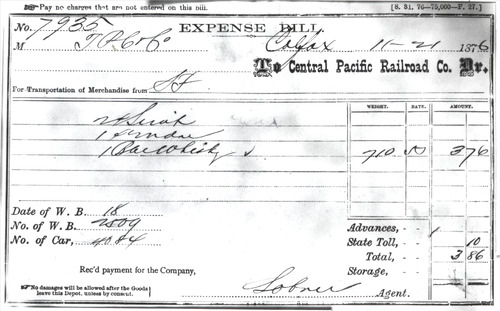 Pay no charges that are not entered on this bill. [S. 31. 76—75,000—F. 27.]
EXPENSE BILL.
No. 7935
M Colfax 11-21 1876
To Central Pacific Railroad Co. Dr.
For Transportation of Merchandise from SF
WEIGHT. RATE. AMOUNT.
1 Bbl Whisky 710 50 3 76
Date of W. B. 18
No. of W. B. 2809
No. of Car, 4084
Advances,
State Toll, 10
Total, 3 86
Storage,
Rec'd payment for the Company,
No damages will be allowed after the Goods
leave this Depot, unless by consent.
Lobner Agent.